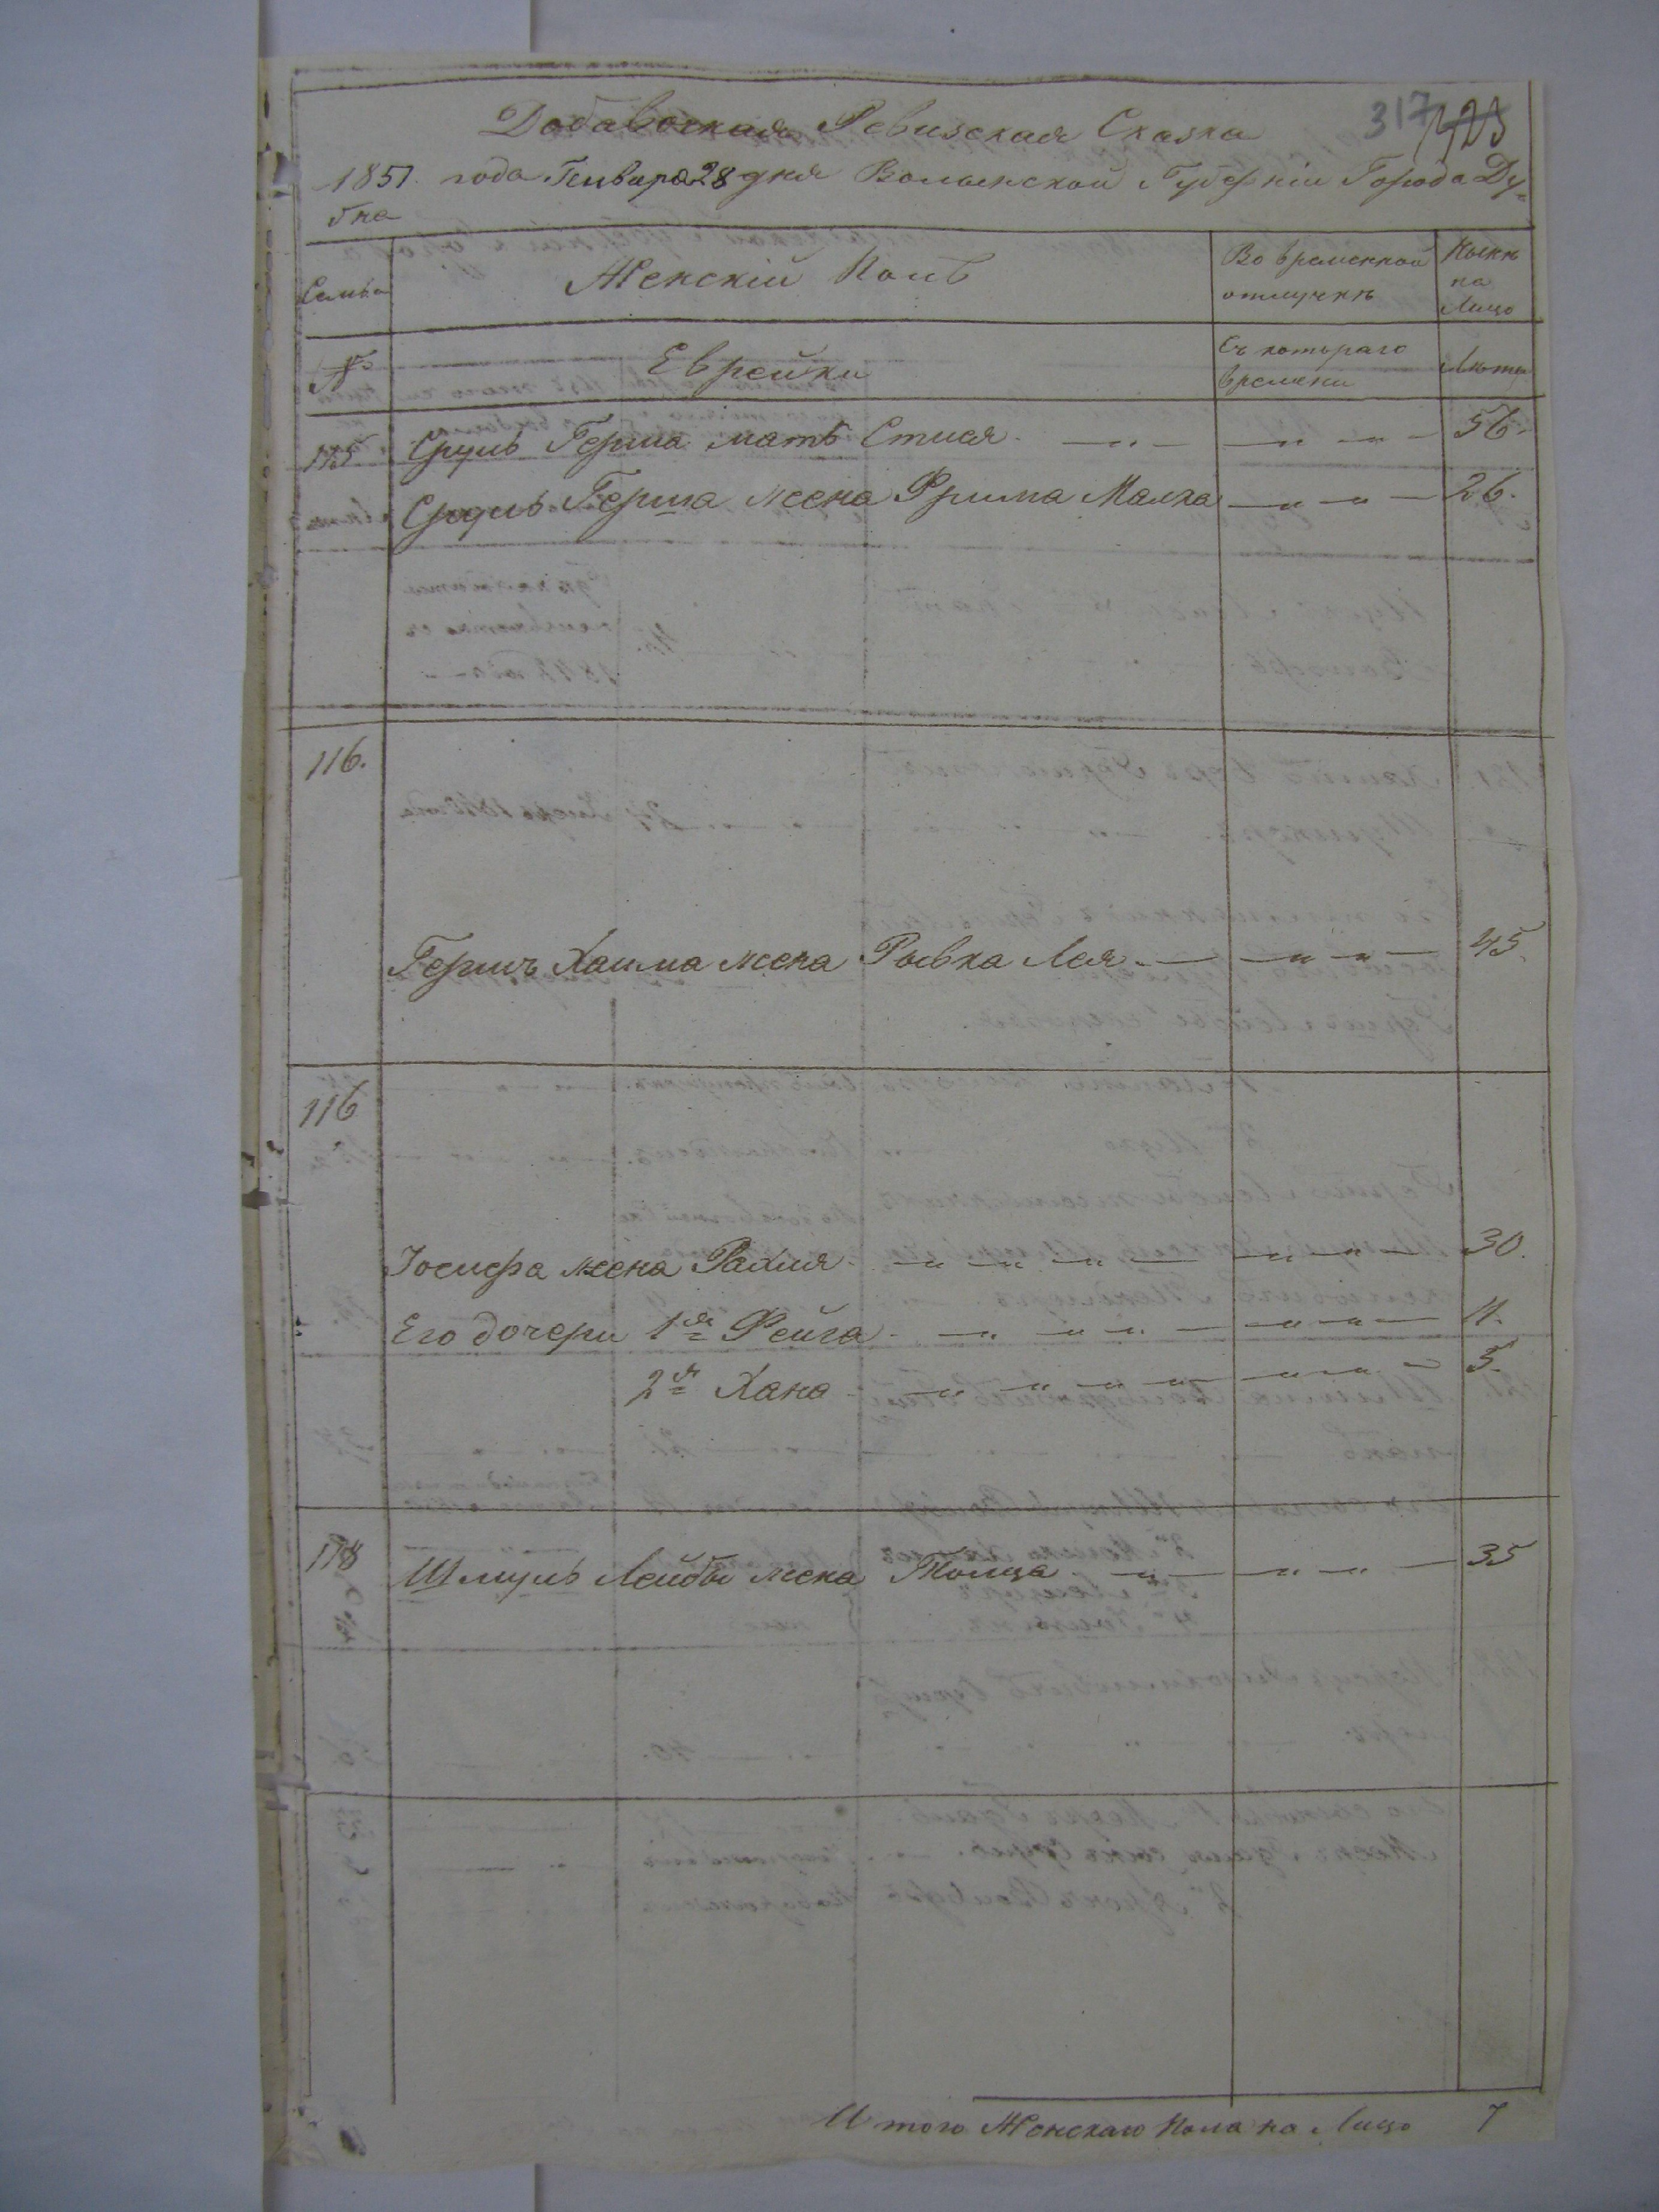 Добавоская Ревизская Сказка
317
1851 года Генваря 28 дня Волынской Губерніи Города Ду=
бна
Семьи Женскій Полъ Во временной отлучкѣ Нынѣ на Лицо
№ Еврейки Съ котораго времени Лѣта
115 Сруль Герша мать Стися 56.
Сруль Герша жена Фрима Малка 26.
116.
Гершъ Хаима жена Рывка Лея 45.
116
Іосифа жена Рахля 30.
Его дочери 1я Фейга 11.
2я Хана 5.
118 Шмуль Лейбы жена Тольца 35
Итого Женскаго Пола на Лицо 7